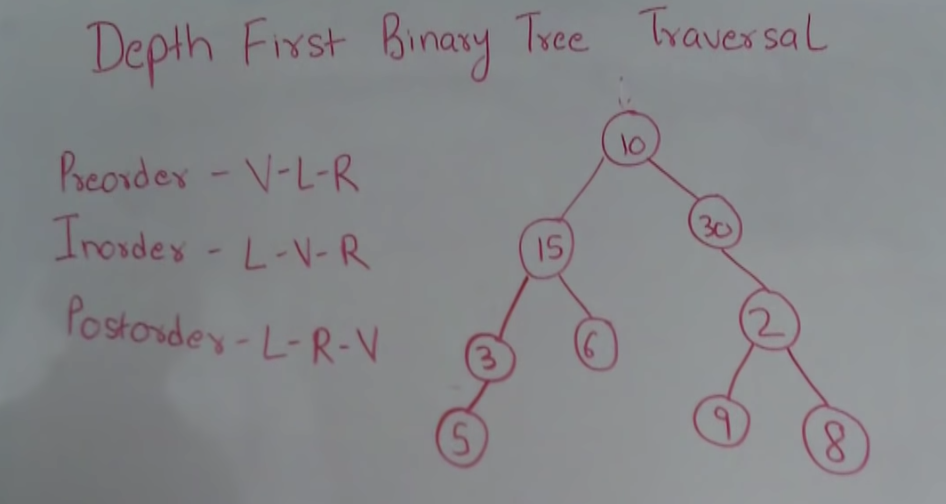 Depth First Binary Tree Traversal
Preorder - V-L-R
Inorder - L-V-R
Postorder - L-R-V
10
30
15
2
3
6
9
5
8